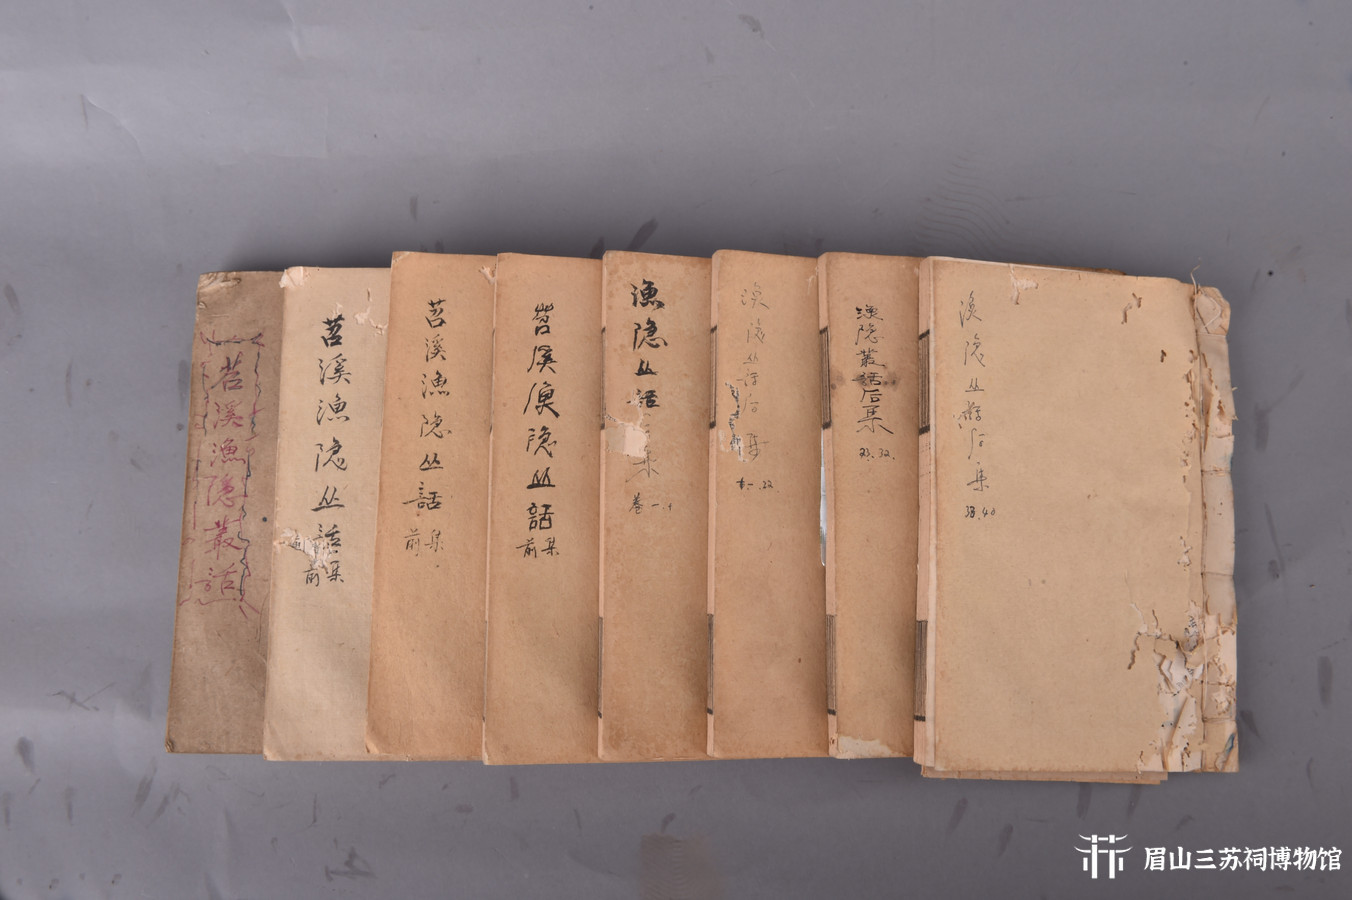 苕溪漁隱叢話
苕溪漁隐丛話
前集
苕溪漁隐丛話
前集
苕溪渔隐丛話
前集
漁隐丛話
集
卷一.
渔隐丛話后集
.22.
渔隐叢話后集
23.32.
渔隐丛話后集
33.40
眉山三苏祠博物馆